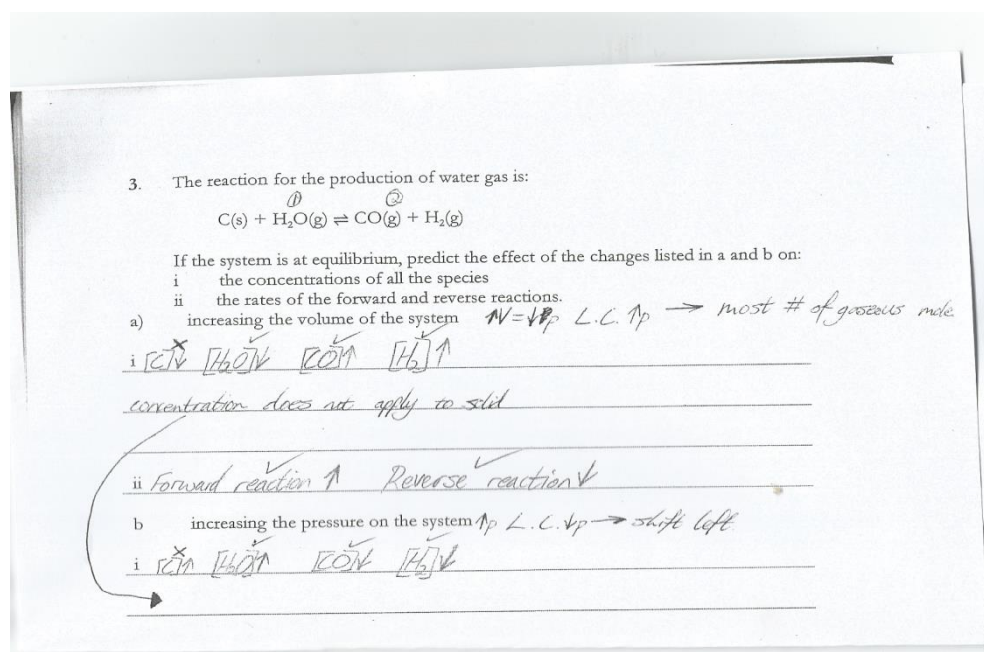 3. The reaction for the production of water gas is:
① ②
C(s) + H₂O(g) ⇌ CO(g) + H₂(g)
If the system is at equilibrium, predict the effect of the changes listed in a and b on:
i the concentrations of all the species
ii the rates of the forward and reverse reactions.
a) increasing the volume of the system ↑V=↓p L.C. ↑p → most # of gaseous mole
i [C]↓ ✗ [H₂O]↓ ✓ [CO]↑ ✓ [H₂]↑ ✓
concentration does not apply to solid
ii Forward reaction ↑ ✓ Reverse reaction ↓ ✓
b increasing the pressure on the system ↑p L.C.↓p → shift left
i [C]↑ ✗ [H₂O]↑ ✓ [CO]↓ ✓ [H₂]↓ ✓